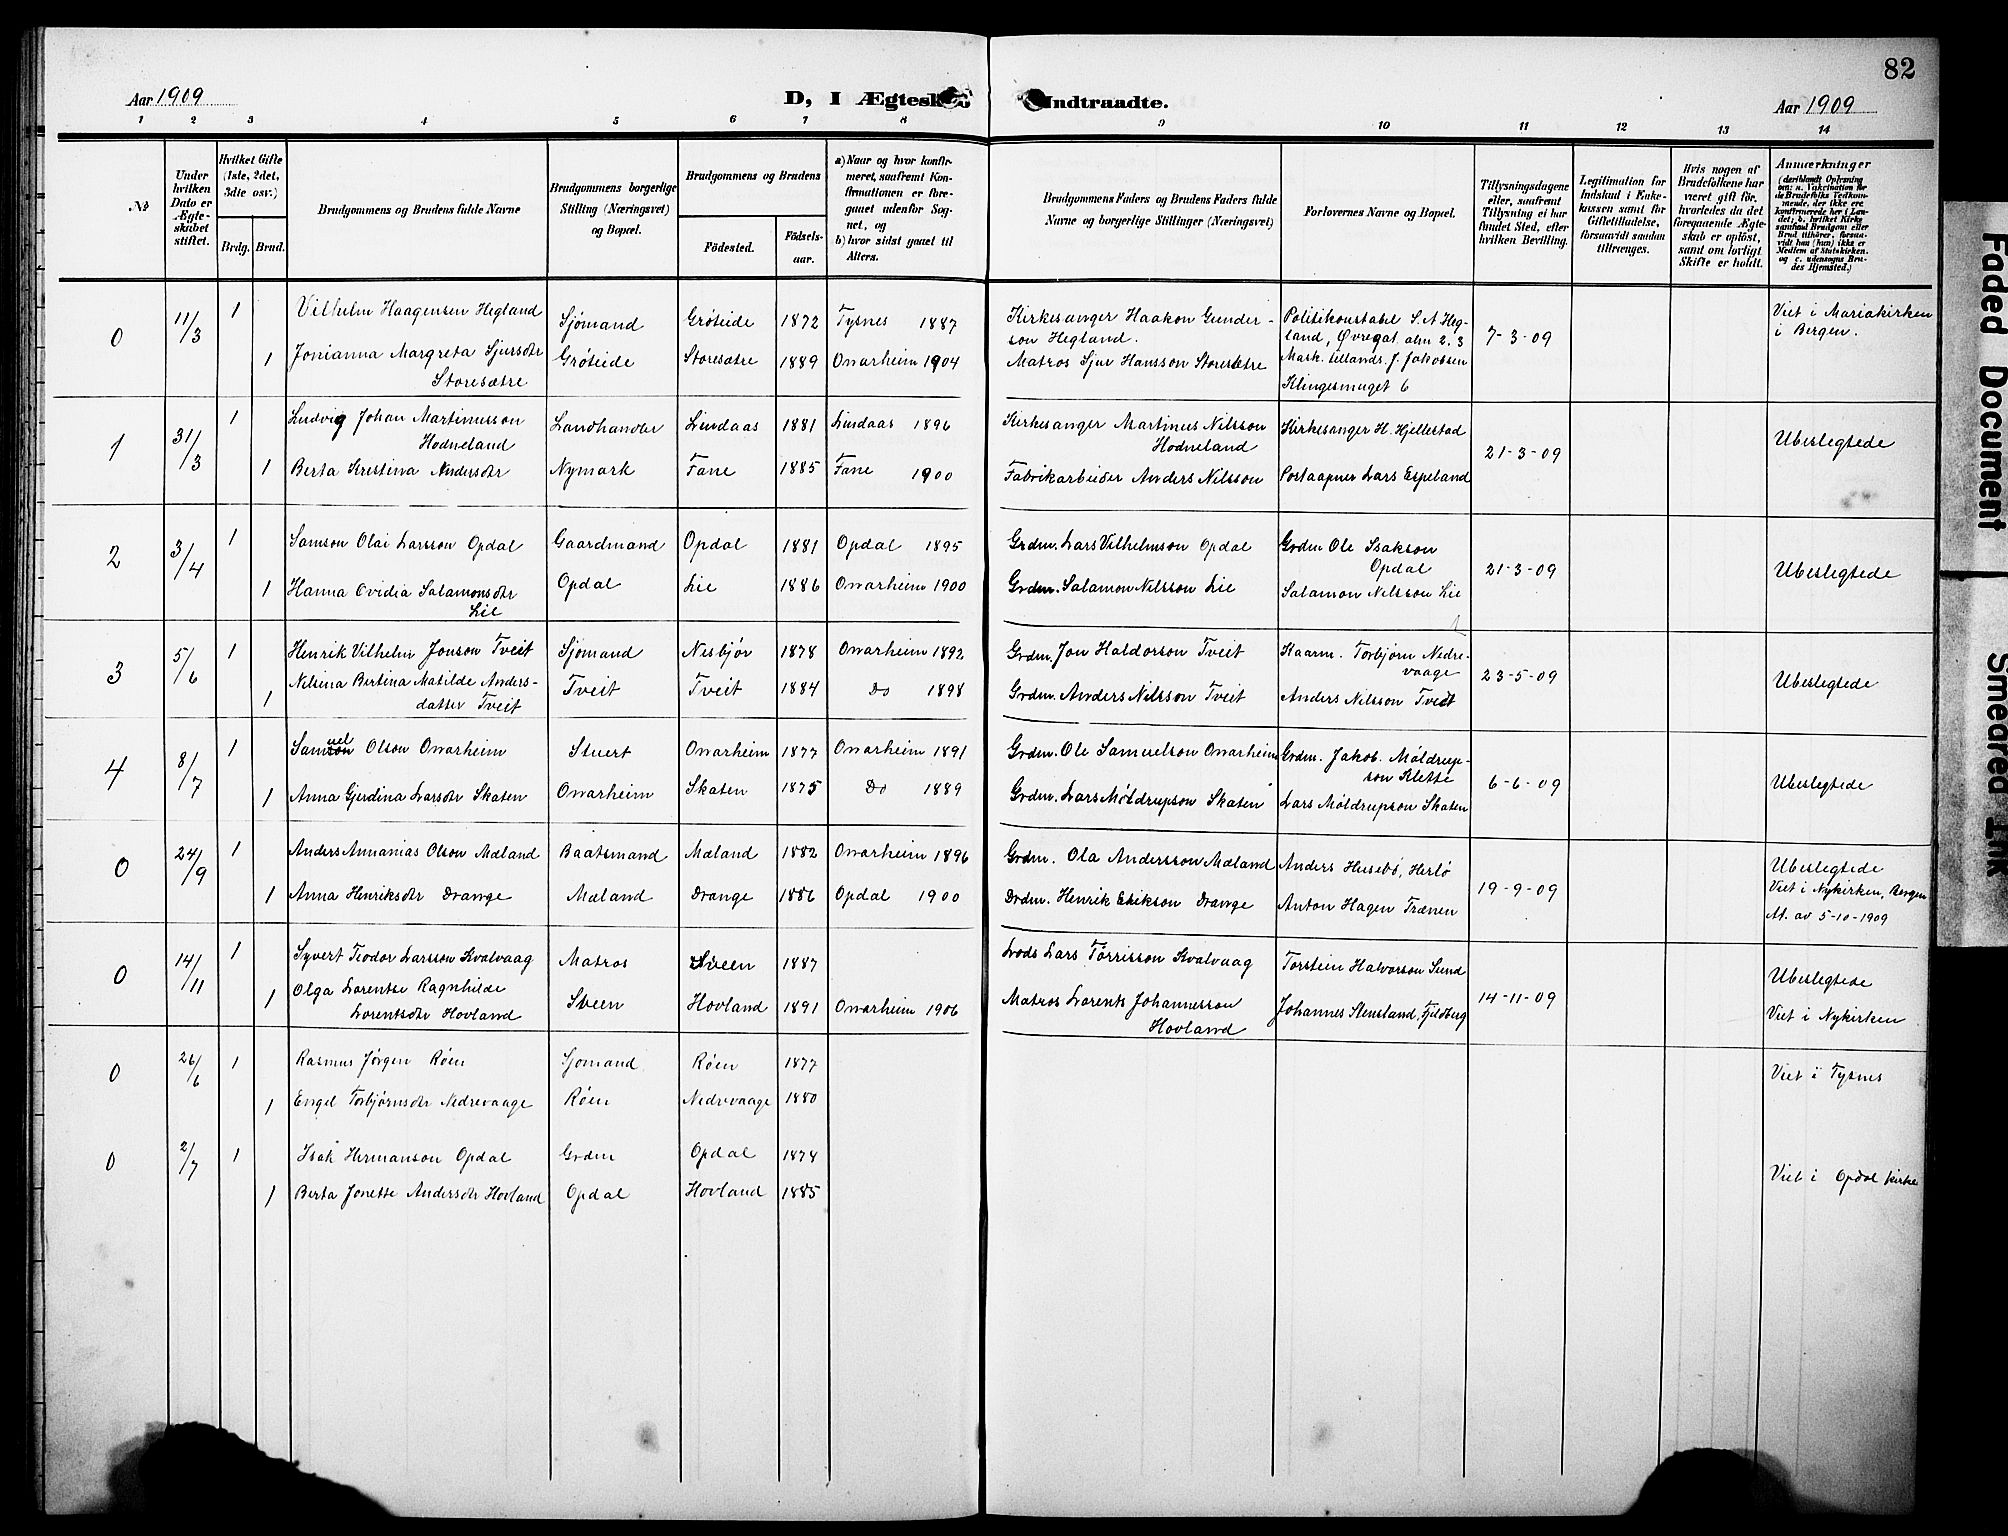 82
Aar 1909
D, I Ægtesk
Indtraadte.
Aar 1909
1 2 3 4 5 6 7 8 9 10 11 12 13 14
No
Under hvilken Dato er Ægteskabet stiftet.
Hvilket Gifte (1ste, 2det, 3die osv.)
Brdg. Brud.
Brudgommens og Brudens fulde Navne
Brudgommens borgerlige Stilling (Næringsvei) og Bopæl.
Brudgommens og Brudens
Födested.
Födselsaar.
a) Naar og hvor konfirmeret, saafremt Konfirmationen er foregaaet udenfor Sognet, og
b) hvor sidst gaaet til Alters.
Brudgommens Faders og Brudens Faders fulde Navne og borgerlige Stillinger (Næringsvei)
Forlovernes Navne og Bopæl.
Tillysningsdagene eller, saafremt Tillysning ei har fundet Sted, efter hvilken Bevilling.
Legitimation for Indskud i Enkekassen samt for Giftetilladelse, forsaavidt saadan tiltrænges.
Hvis nogen af Brudefolkene har været gift för, hvorledes da det foregaaende Ægteskab er oplöst, samt om lovligt Skifte er holdt.
Anmærkninger
(deriblandt Oplysning om: a. Vakcination för de Brudefolks Vedkommende, der ikke ere konfirmerede her i Landet; b. hvilket Kirkesamfund Brudgom eller Brud tilhörer, forsaavidt han (hun) ikke er Medlem af Statskirken, og c. udensogns Brudes Hjemsted.)
0 11/3 1 Vilhelm Haagensen Hegland Sjömand Gröteide 1872 Tysnes 1887 Kirkesanger Haakon Gunderson Hegland. Politikonstabel S. A Hegland, Øvregat. alm 2. 3 7-3-09 Viet i Mariakirken i Bergen.
1 Jonianna Margreta Sjursdtr Storesætre Gröteide Storesætre 1889 Onarheim 1904 Matros Sjur Hansson Storesætre J. Jakobsen Klingesmuget 6
1 31/3 1 Ludvig Johan Martinusson Hodneland Landhandler Lindaas 1881 Lindaas 1896 Kirkesanger Martinus Nilsson Hodneland Kirkesanger H. Hjellestad 21-3-09 Ubeslegtede
1 Berta Kristina Andersdtr Nymark Fane 1885 Fane 1900 Fabrikarbeider Anders Nilsson Postaapner Lars Espeland
2 3/4 1 Samson Olai Larsson Opdal Gaardmand Opdal 1881 Opdal 1895 Grdm. Lars Vilhelmson Opdal Grdm Ole Isakson Opdal 21-3-09 Ubeslegtede
1 Hanna Ovidia Salamonsdtr Lie Opdal Lie 1886 Onarheim 1900 Grdm. Salamon Nilsson Lie Salamon Nilsson Lie
3 5/6 1 Henrik Vilhelm Jonson Tveit Sjömand Nesbjör 1878 Onarheim 1892 Grdm. Jon Haldorson Tveit Kaarm. Torbjørn Nedrevaage 23-5-09 Ubeslegtede
1 Nilsina Bertina Matilde Andersdatter Tveit Tveit Tveit 1884 Do 1898 Grdm. Anders Nilsson Tveit Anders Nilsson Tveit
4 8/7 1 Samuel Olson Onarheim Stuert Onarheim 1877 Onarheim 1891 Grdm. Ole Samuelson Onarheim Grdm. Jakob. Møldrupson Klette 6-6-09 Ubeslegtede
1 Anna Gjerdina Larsdtr Skaten Onarheim Skaten 1875 Do 1889 Grdm. Lars Møldrupson Skaten Lars Møldrupson Skaten
0 24/9 1 Anders Annanias Olson Mæland Baatsmand Mæland 1882 Onarheim 1896 Grdm. Ola Andersson Mæland Anders Husebö, Herlö 19-9-09 Ubeslegtede
Viet i Nykirken, Bergen
At. av 5-10-1909
1 Anna Henriksdtr Drange Mæland Drange 1886 Opdal 1900 Grdm. Henrik Erikson Drange Anton Hagen Trænen
0 14/11 1 Syvert Teodor Larsson Kvalvaag Matros Sveen 1887 Lods Lars Törrisson Kvalvaag Torstein Halvorson Sund 14-11-09 Ubeslegtede
1 Olga Lorentse Ragnhilde Lorentsdtr Hovland Sveen Hovland 1891 Onarheim 1906 Matros Lorents Johannesson Hovland Johannes Stensland, Fjelberg Viet i Nykirken
0 26/6 1 Rasmus Jørgen Røen Sjömand Røen 1877 Viet i Tysnes
1 Engel Torbjørnsdtr Nedrevaage Røen Nedrevaage 1880
0 2/7 1 Isak Hermanson Opdal Grdm Opdal 1874 Viet i Opdal kirke
1 Berta Jonette Andersdtr Hovland Opdal Hovland 1885
Faded Document
Smeared Ink